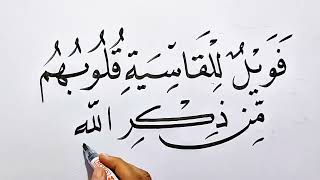 فَوَيْلٌ لِلْقَاسِيَةِ قُلُوبُهُم
مِّن ذِكْرِ اللّه